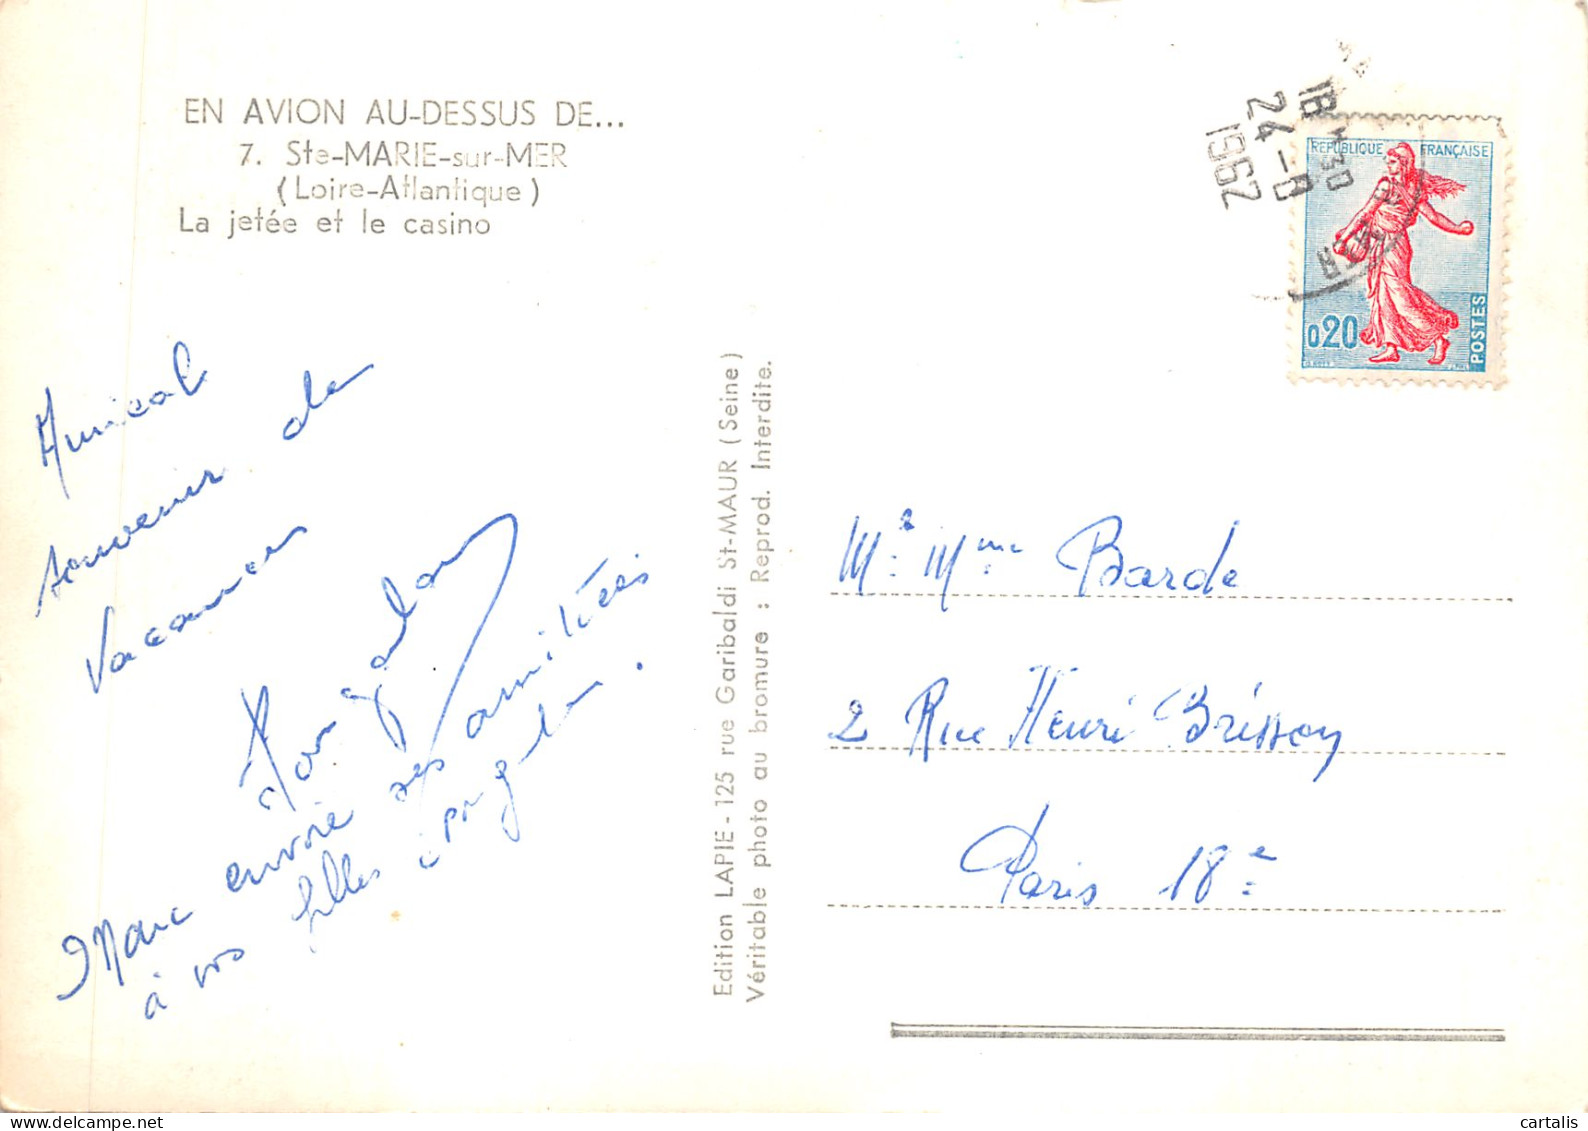 EN AVION AU-DESSUS DE...
7. Ste-MARIE-sur-MER
(Loire-Atlantique)
La jetée et le casino
Amical
souvenir de
vacances
Marc envoie ses amitiées
à vos filles
Edition LAPIE - 125 rue Garibaldi St-MAUR (Seine)
Véritable photo au bromure : Reprod. Interdite.
18 H30
24 - 8
1962
REPUBLIQUE FRANÇAISE
0,20
POSTES
Mr Mme Barde
2 Rue Henri Brisson
Paris 18e
cartalis.com